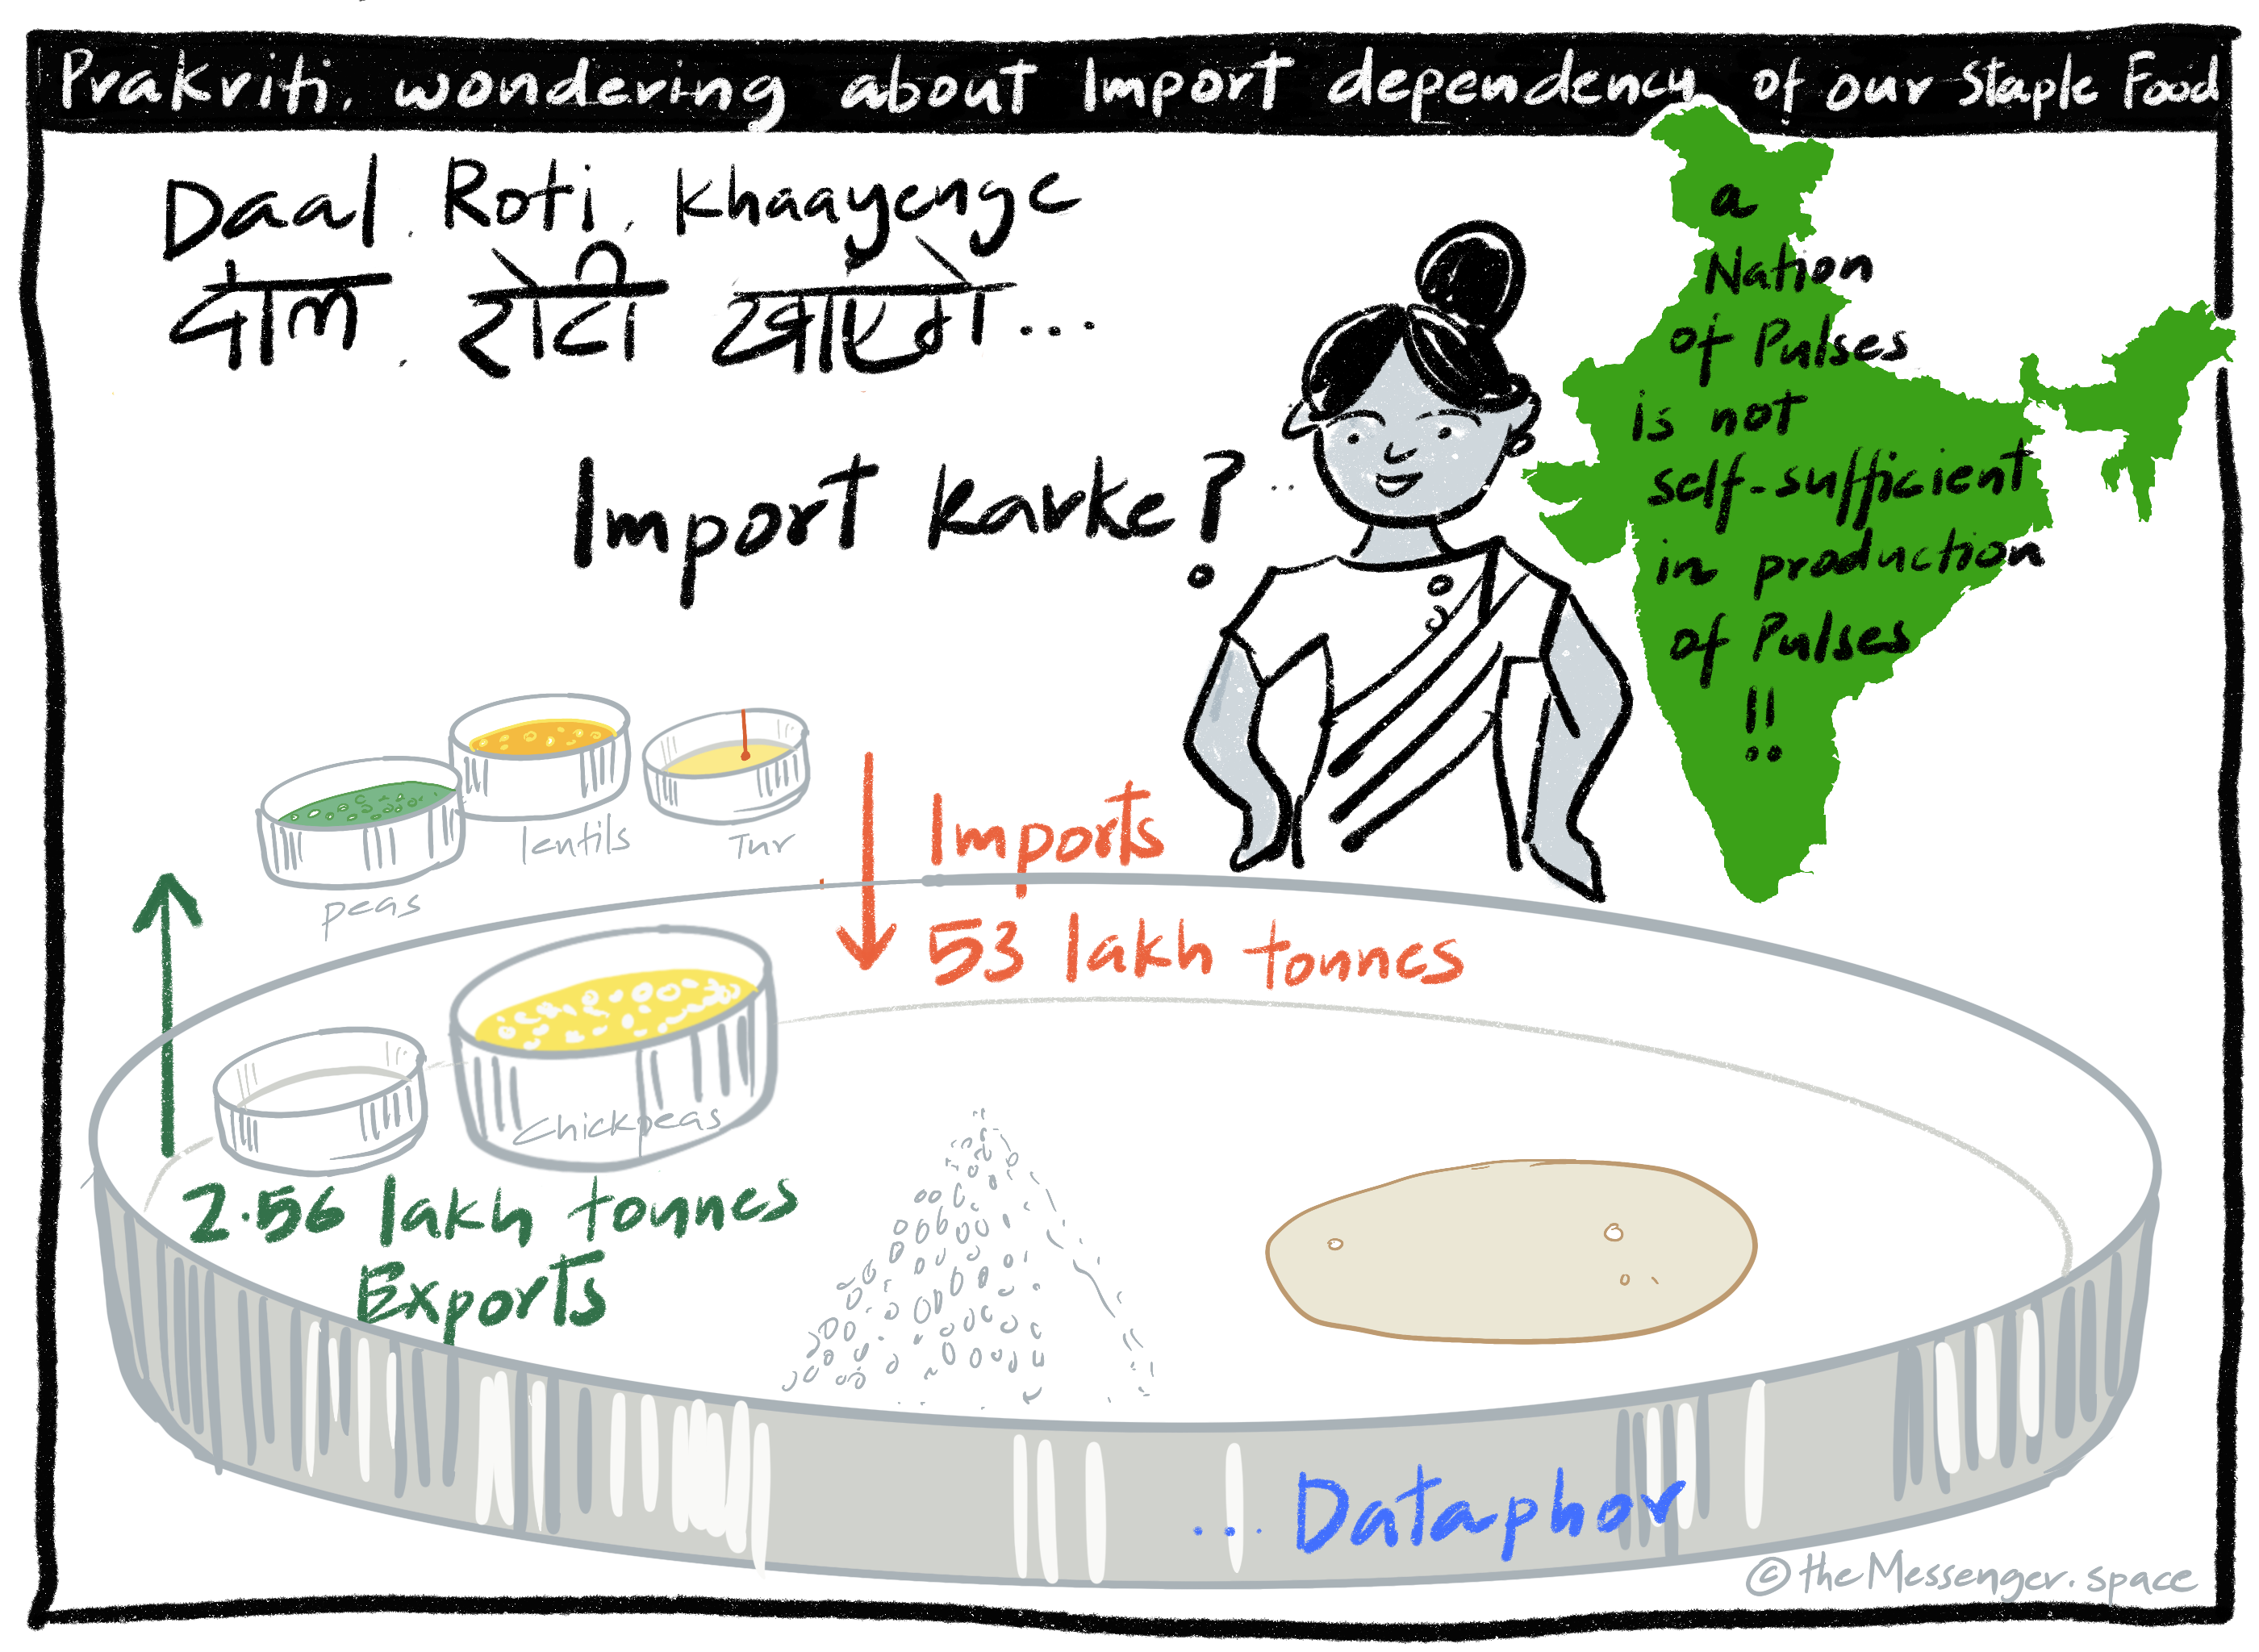 Prakriti, wondering about Import dependency of our Staple Food
Daal, Roti, Khaayenge
दाल, रोटी खाएंगे...
Import Karke?
a
Nation
of Pulses
is not
self-sufficient
in production
of Pulses
!!
lentils
Tur
peas
Imports
53 lakh tonnes
Chickpeas
2.56 lakh tonnes
Exports
... Dataphor
© theMessenger.space